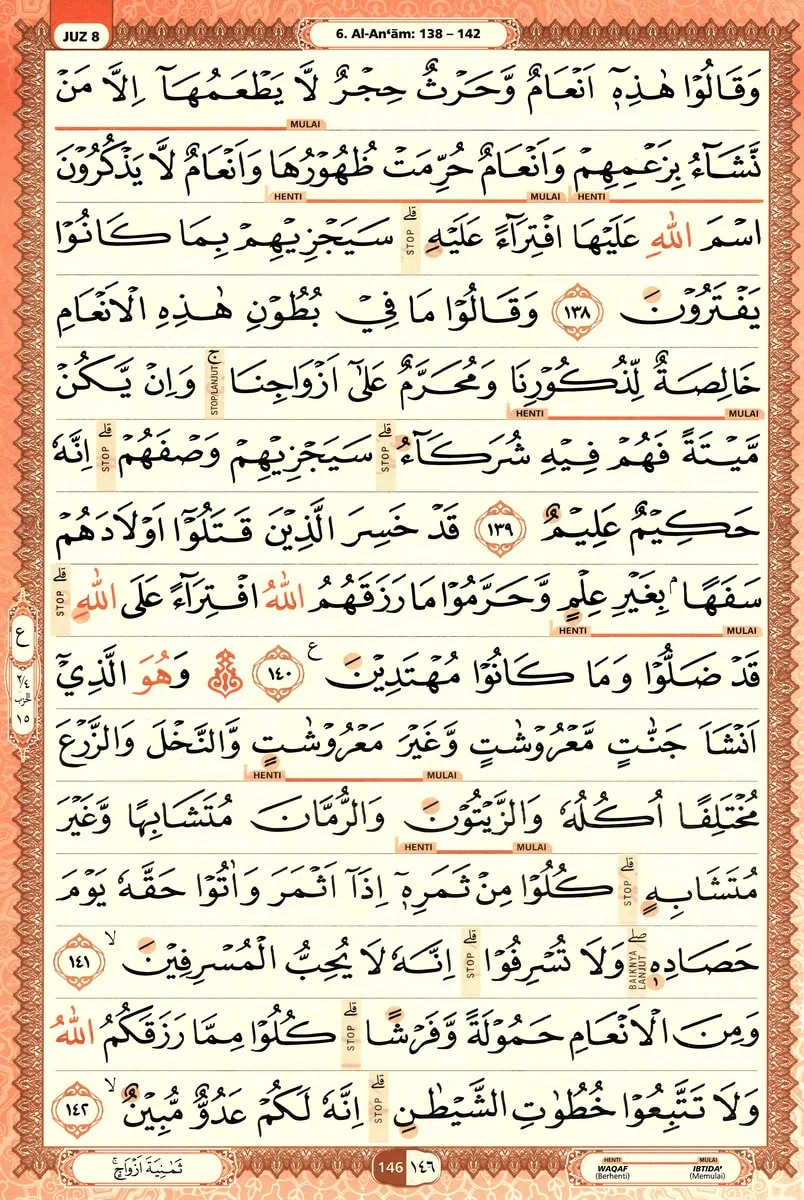 JUZ 8
6. Al-An‘ām: 138 – 142
وَقَالُوْا هٰذِهٖٓ اَنْعَامٌ وَّحَرْثٌ حِجْرٌ لَّا يَطْعَمُهَآ اِلَّا مَنْ
MULAI
نَّشَاۤءُ بِزَعْمِهِمْ وَاَنْعَامٌ حُرِّمَتْ ظُهُوْرُهَا وَاَنْعَامٌ لَّا يَذْكُرُوْنَ
HENTI MULAI HENTI
اسْمَ اللّٰهِ عَلَيْهَا افْتِرَاۤءً عَلَيْهِۗ STOP سَيَجْزِيْهِمْ بِمَا كَانُوْا
يَفْتَرُوْنَ ١٣٨ وَقَالُوْا مَا فِيْ بُطُوْنِ هٰذِهِ الْاَنْعَامِ
خَالِصَةٌ لِّذُكُوْرِنَا وَمُحَرَّمٌ عَلٰٓى اَزْوَاجِنَاۚ STOP/LANJUT وَاِنْ يَّكُنْ
HENTI MULAI
مَّيْتَةً فَهُمْ فِيْهِ شُرَكَاۤءُۗ STOP سَيَجْزِيْهِمْ وَصْفَهُمْۗ STOP اِنَّهٗ
حَكِيْمٌ عَلِيْمٌ ١٣٩ قَدْ خَسِرَ الَّذِيْنَ قَتَلُوْٓا اَوْلَادَهُمْ
سَفَهًاۢ بِغَيْرِ عِلْمٍ وَّحَرَّمُوْا مَا رَزَقَهُمُ اللّٰهُ افْتِرَاۤءً عَلَى اللّٰهِۗ STOP
HENTI MULAI
قَدْ ضَلُّوْا وَمَا كَانُوْا مُهْتَدِيْنَ ࣖ ١٤٠ ۞ وَهُوَ الَّذِيْٓ
ع
٢/٤
الحزب
١٥
اَنْشَاَ جَنّٰتٍ مَّعْرُوْشٰتٍ وَّغَيْرَ مَعْرُوْشٰتٍ وَّالنَّخْلَ وَالزَّرْعَ
HENTI MULAI
مُخْتَلِفًا اُكُلُهٗ وَالزَّيْتُوْنَ وَالرُّمَّانَ مُتَشَابِهًا وَّغَيْرَ
HENTI MULAI
مُتَشَابِهٍۗ STOP كُلُوْا مِنْ ثَمَرِهٖٓ اِذَآ اَثْمَرَ وَاٰتُوْا حَقَّهٗ يَوْمَ
حَصَادِهٖۖ BAIKNYA LANJUT وَلَا تُسْرِفُوْاۗ STOP اِنَّهٗ لَا يُحِبُّ الْمُسْرِفِيْنَۙ ١٤١
وَمِنَ الْاَنْعَامِ حَمُوْلَةً وَّفَرْشًاۗ STOP كُلُوْا مِمَّا رَزَقَكُمُ اللّٰهُ
وَلَا تَتَّبِعُوْا خُطُوٰتِ الشَّيْطٰنِۗ STOP اِنَّهٗ لَكُمْ عَدُوٌّ مُّبِيْنٌۙ ١٤٢
ثَمٰنِيَةَ اَزْوَاجٍۚ
146 ١٤٦
HENTI MULAI
WAQAF IBTIDA’
(Berhenti) (Memulai)